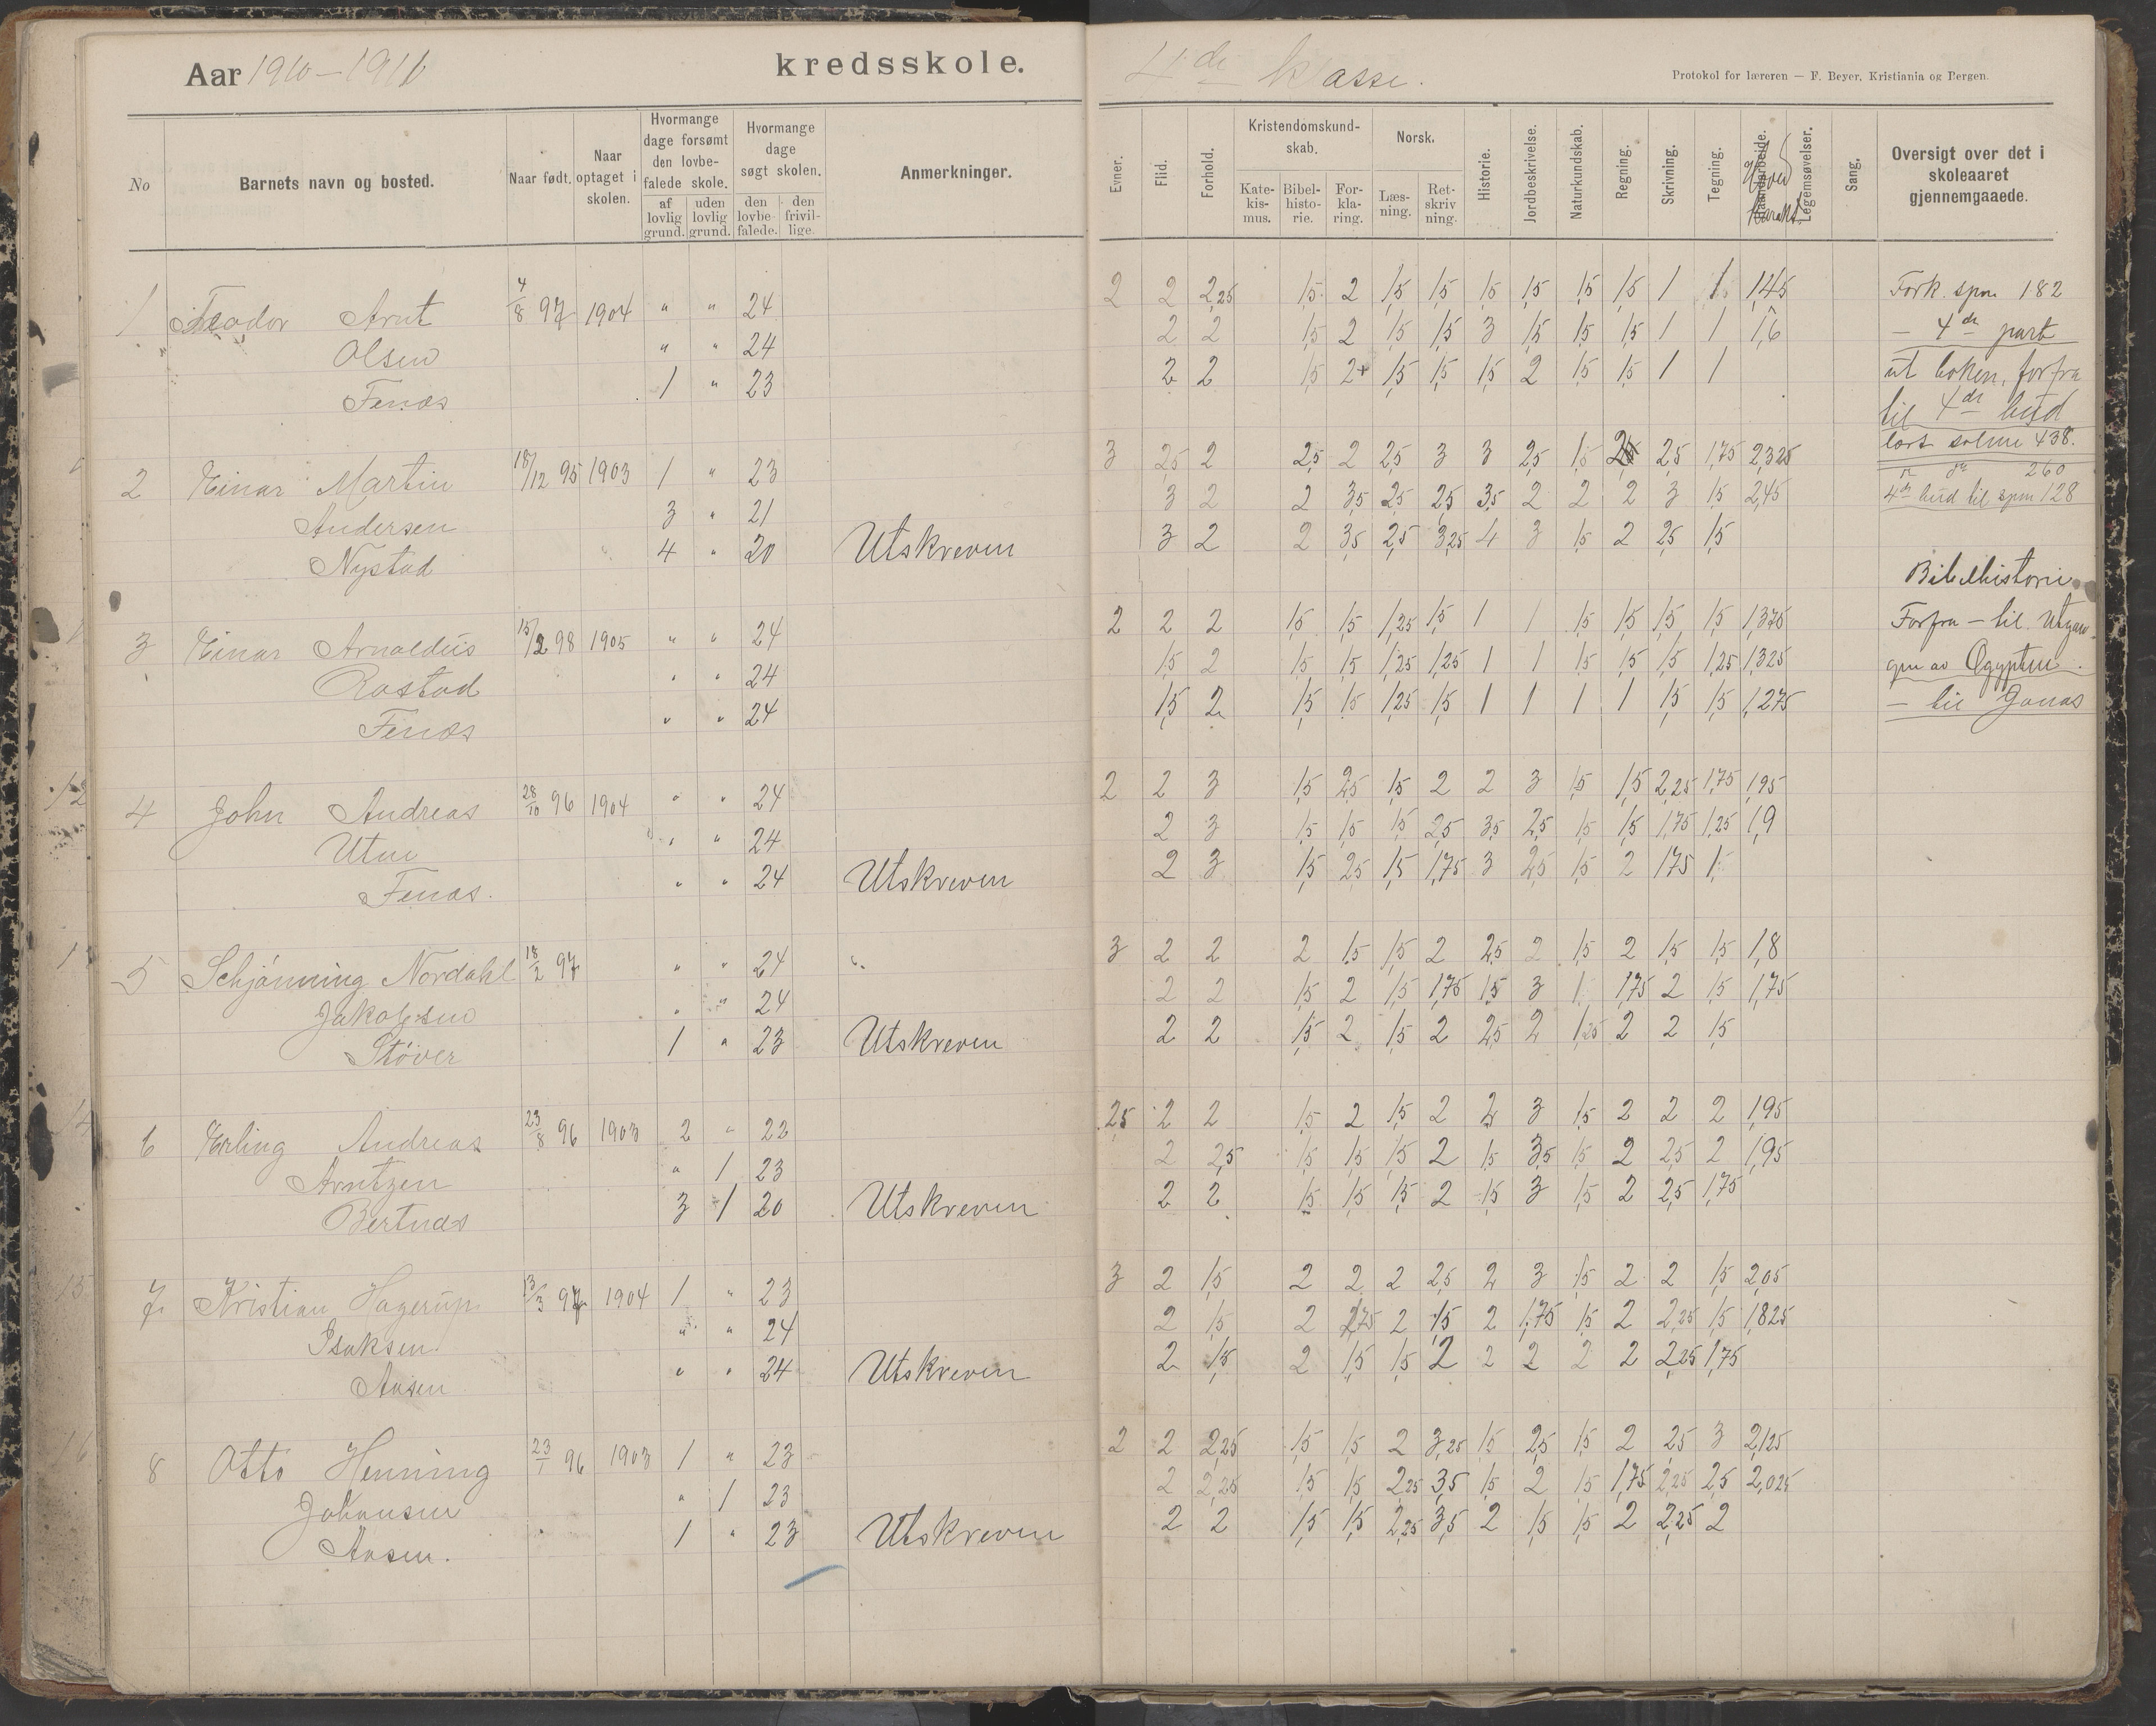 Aar 1910-1911
kredsskole.
No
Barnets navn og bosted.
Naar født.
Naar optaget i skolen.
Hvormange dage forsømt den lovbefalede skole.
af lovlig grund.
uden lovlig grund.
Hvormange dage søgt skolen.
den lovbefalede.
den frivillige.
Anmerkninger.
1 Teodor Arnt 4/8 97 1904 " " 24
Olsen " " 24
Fenæs 1 " 23
2 Einar Martin 18/12 95 1903 1 " 23
Andersen 3 " 21
Nystad 4 " 20 Utskreven
3 Einar Arnoldus 15/2 98 1905 " " 24
Rostad " " 24
Fenæs " " 24
4 John Andreas 28/10 96 1904 " " 24
Utne " " 24
Fenæs. " " 24 Utskreven
5 Schjønning Nordahl 18/2 97 " " 24 "
Jakobsen " " 24
Støver 1 " 23 Utskreven
6 Erling Andreas 23/8 96 1903 2 " 22
Arntzen " 1 23
Bertnæs 3 1 20 Utskreven
7 Kristian Hagerup 13/3 97 1904 1 " 23
Isaksen " " 24
Aasen " " 24 Utskreven
8 Otto Henning 23/1 96 1903 1 " 23
Johansen " 1 23
Aasen. 1 " 23 Utskreven
4de klasse.
Protokol for læreren — F. Beyer, Kristiania og Bergen.
Evner.
Flid.
Forhold.
Kristendomskundskab.
Katekismus.
Bibelhistorie.
Forklaring.
Norsk.
Læsning.
Retskrivning.
Historie.
Jordbeskrivelse.
Naturkundskab.
Regning.
Skrivning.
Tegning.
Haandarbeide.
Hoved karakt.
Legemsøvelser.
Sang.
Oversigt over det i skoleaaret gjennemgaaede.
2 2 2,25 1,5 2 1,5 1,5 1,5 1,5 1,5 1,5 1 1 1,45
2 2 1,5 2 1,5 1,5 3 1,5 1,5 1,5 1 1 1,6
2 2 1,5 2+ 1,5 1,5 1,5 2 1,5 1,5 1 1
3 2,5 2 2,5 2 2,5 3 3 2,5 1,5 2,5 2,5 1,75 2,325
3 2 2 3,5 2,5 2,5 3,5 2 2 2 3 1,5 2,45
3 2 2 3,5 2,5 3,25 4 3 1,5 2 2,5 1,5
2 2 2 1,5 1,5 1,25 1,5 1 1 1,5 1,5 1,5 1,5 1,375
1,5 2 1,5 1,5 1,25 1,25 1 1 1,5 1,5 1,5 1,25 1,325
1,5 2 1,5 1,5 1,25 1,5 1 1 1 1 1,5 1,5 1,275
2 2 3 1,5 2,5 1,5 2 2 3 1,5 1,5 2,25 1,75 1,95
2 3 1,5 1,5 1,5 2,5 3,5 2,5 1,5 1,5 1,75 1,25 1,9
2 3 1,5 2,5 1,5 1,75 3 2,5 1,5 2 1,75 1,
3 2 2 2 1,5 1,5 2 2,5 2 1,5 2 1,5 1,5 1,8
2 2 1,5 2 1,5 1,75 1,5 3 1 1,75 2 1,5 1,75
2 2 1,5 2 1,5 2 2,5 2 1,25 2 2 1,5
2,5 2 2 1,5 2 1,5 2 2 3 1,5 2 2 2 1,95
2 2,5 1,5 1,5 1,5 2 1,5 3,5 1,5 2 2,5 2 1,95
2 2 1,5 1,5 1,5 2 1,5 3 1,5 2 2,5 1,75
3 2 1,5 2 2 2 2,5 2 3 1,5 2 2 1,5 2,05
2 1,5 2 1,75 2 1,5 2 1,75 1,5 2 2,25 1,5 1,825
2 1,5 2 1,5 1,5 2 2 2 2 2 2,25 1,75
2 2 2,25 1,5 1,5 2 3,25 1,5 2,5 1,5 2 2,5 3 2,125
2 2,25 1,5 1,5 2,25 3,5 1,5 2 1,5 1,75 2,25 2,5 2,025
2 2 1,5 1,5 2,25 3,5 2 1,5 1,5 2 2,25 2
Fork. spm 182
— 4de part
ut boken, forfra
til 4de bud
lært salme 438.
260
4de bud til spm 128
Bibelhistorie
Forfra — til Utgan-
gen av Ægypten.
— til Jonas